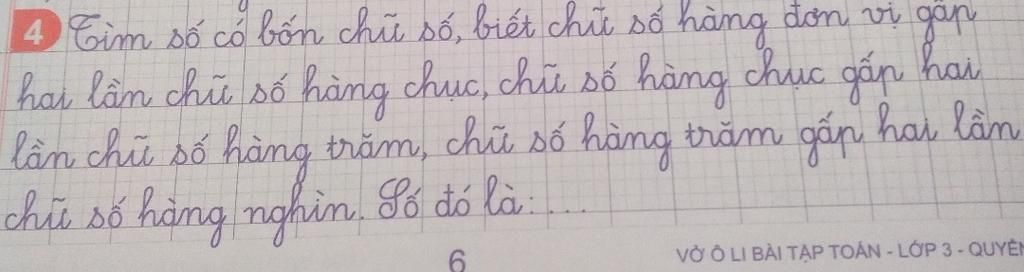 4 Tìm số có bốn chữ số, biết chữ số hàng đơn vị gấp
hai lần chữ số hàng chục, chữ số hàng chục gấp hai
lần chữ số hàng trăm, chữ số hàng trăm gấp hai lần
chữ số hàng nghìn. Số đó là:...
6 VỞ Ô LI BÀI TẬP TOÁN - LỚP 3 - QUYỂN